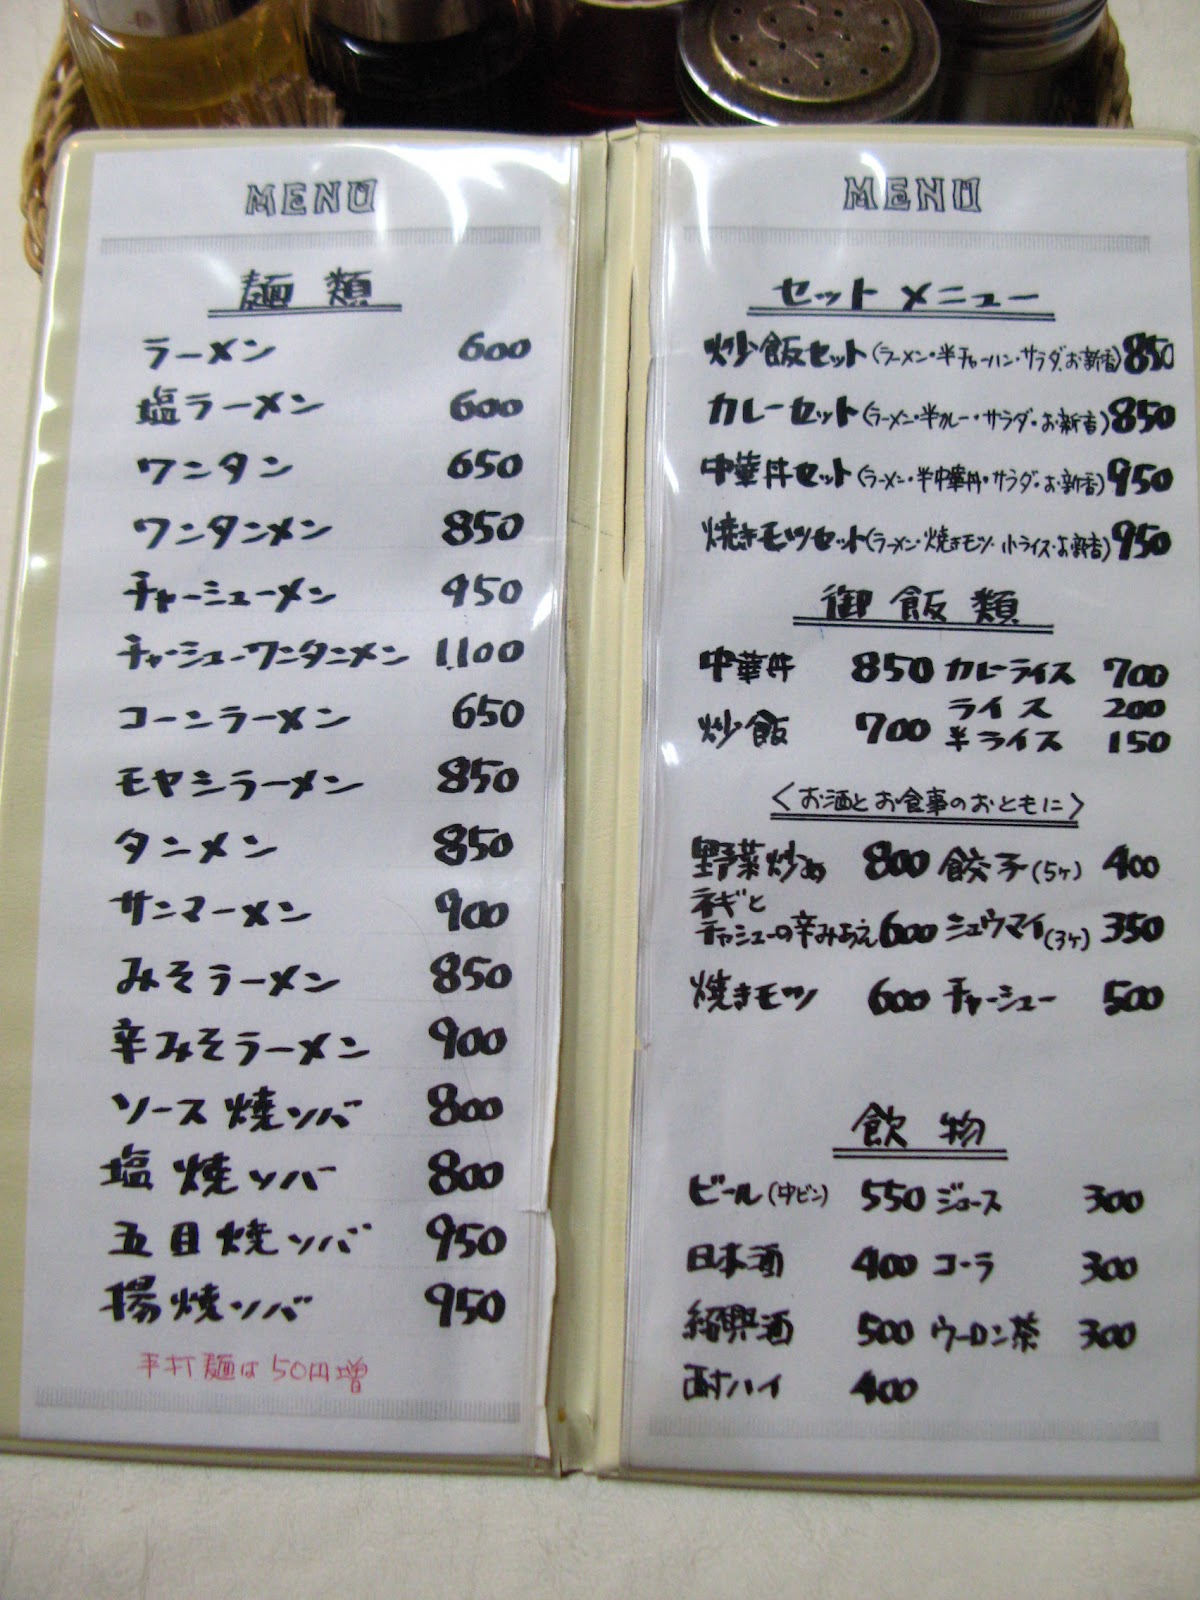 MENU
麺類
ラーメン 600
塩ラーメン 600
ワンタン 650
ワンタンメン 850
チャーシューメン 950
チャーシューワンタンメン 1,100
コーンラーメン 650
モヤシラーメン 850
タンメン 850
サンマーメン 900
みそラーメン 850
辛みそラーメン 900
ソース焼ソバ 800
塩焼ソバ 800
五目焼ソバ 950
揚焼ソバ 950
平打麺は50円増
MENU
セットメニュー
炒飯セット(ラーメン・半チャーハン・サラダ、お新香) 850
カレーセット(ラーメン・半カレー・サラダ・お新香) 850
中華丼セット(ラーメン・半中華丼・サラダ・お新香) 950
焼きモツセット(ラーメン・焼きモツ・小ライス・お新香) 950
御飯類
中華丼 850 カレーライス 700
ライス 200
炒飯 700 半ライス 150
〈お酒とお食事のおともに〉
野菜炒め 800 餃子(5ヶ) 400
ネギと
チャーシューの辛みあえ 600 シュウマイ(3ヶ) 350
焼きモツ 600 チャーシュー 500
飲物
ビール(中ビン) 550 ジュース 300
日本酒 400 コーラ 300
紹興酒 500 ウーロン茶 300
酎ハイ 400